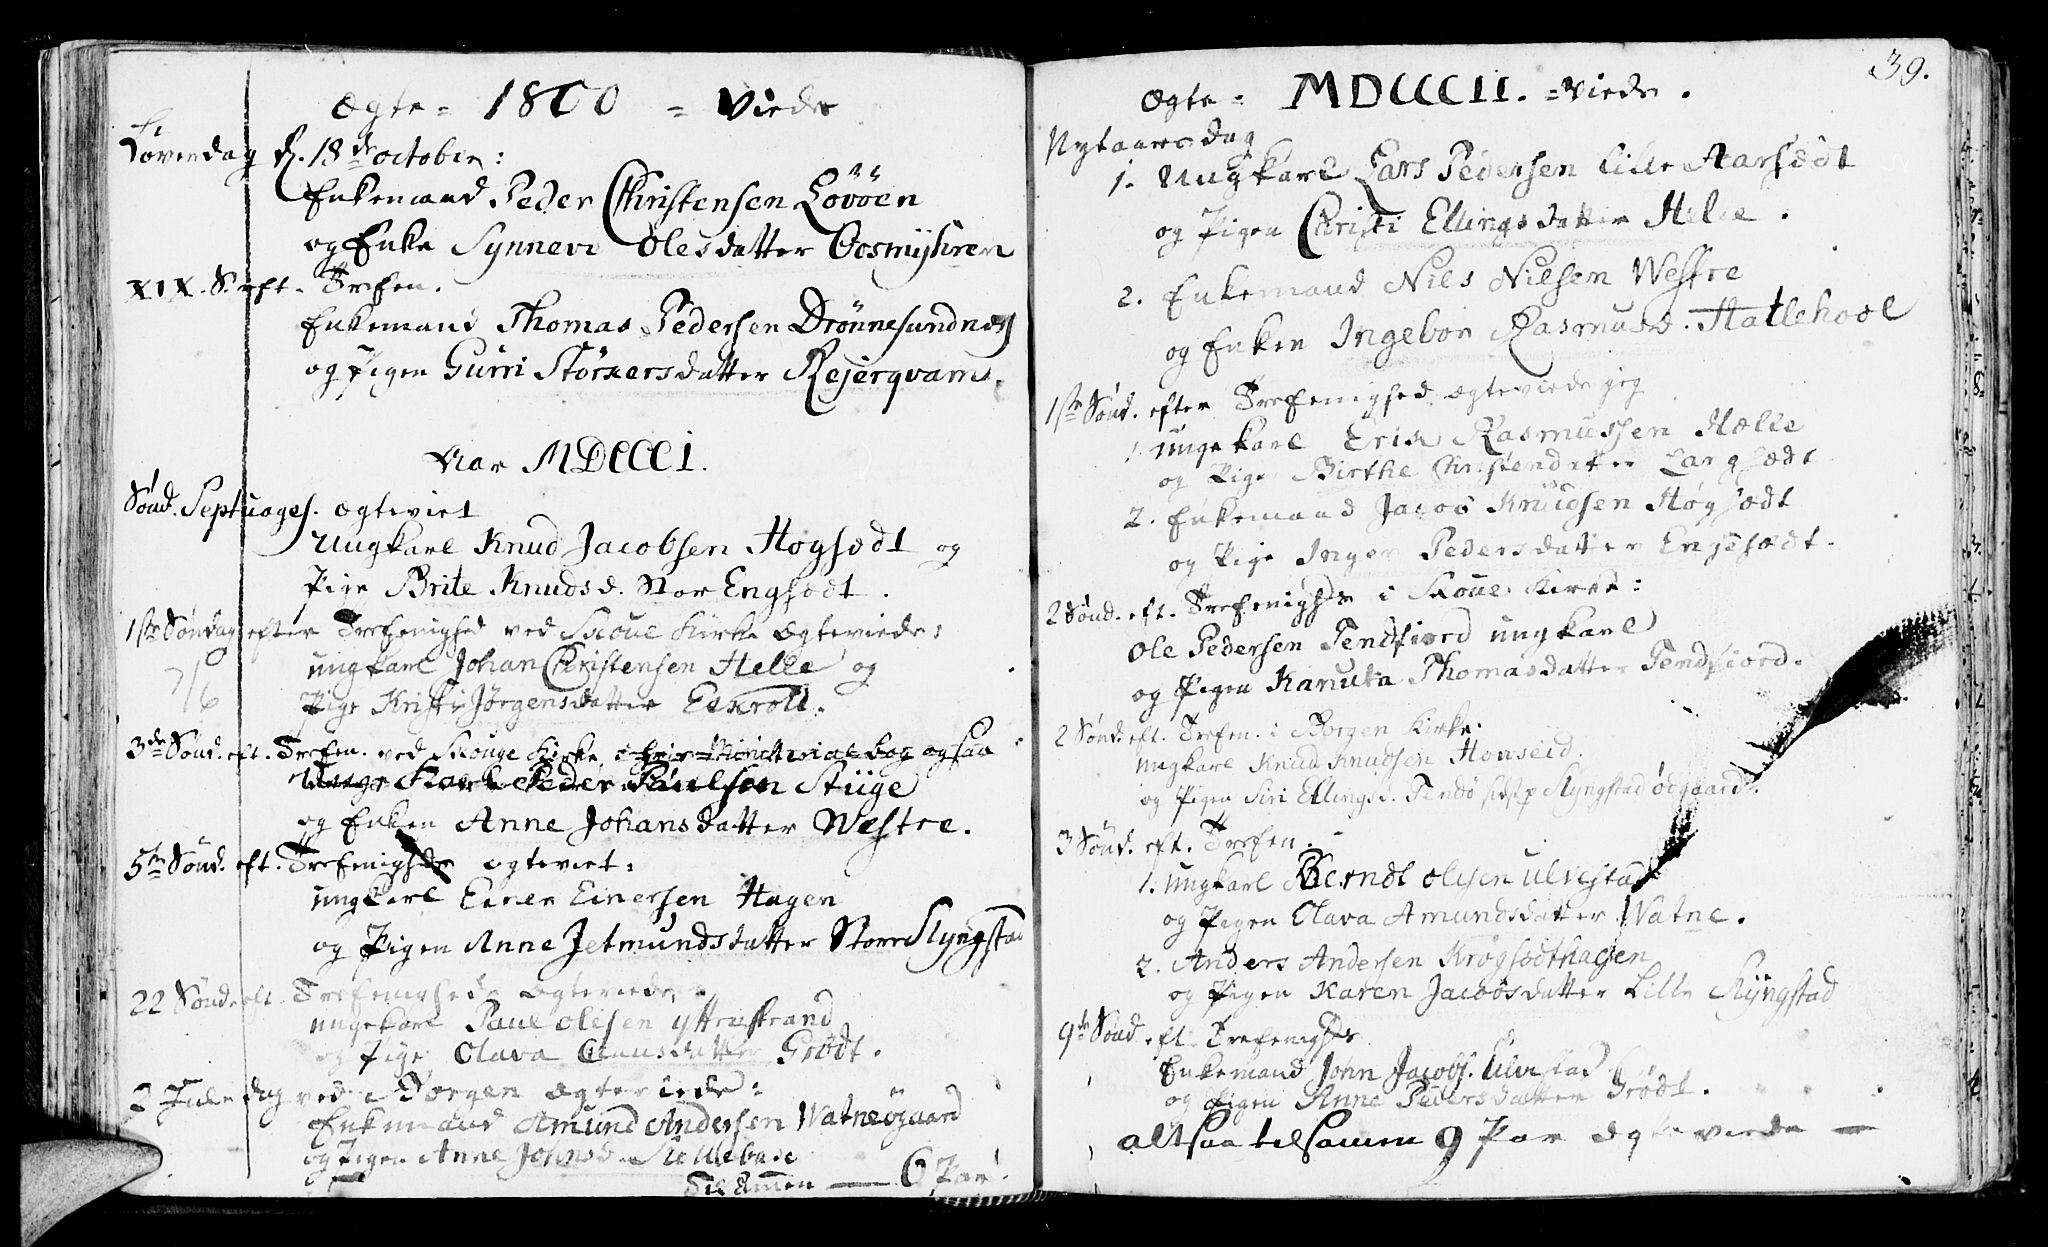 Ægte= 1800 = Viede
Løverdag d. 18de october:
Enkemand Peder Christensen Løvöen
og Enke Synneve Olesdatter Oosmyhren
XIX. S. eft. Trefen.
Enkemand Thomas Pedersen Drönnesundnes
og Pigen Gurri Störkersdatter Rejerqvam
Aar MDCCCI.
Sönd. Septuages. ægteviet
Ungkarl Knud Jacobsen Hogsædt og
Pige Brite Knudsd. Stor Engsædt.
1ste Söndag efter Trefenighed ved Skoue Kirke Ægteviede:
7/6
ungkarl Johan Christensen Helle og
Pige Kristi Jörgensdatter Eekrold.
3de Sönd. eft. Trefen. ved Skouge Kirke, ogsaa
Unge Karl Peder Paulsen Stüge
og Enken Anne Johansdatter Westre.
5te Sönd. eft. Trefenighede ægteviet:
ungkarl Einer Einersen Hagen
og Pigen Anne Jetmundsdatter Store Slyngstad
22 Sönd. eft. Trefenighede Ægteviede,
ungekarl Paul Olesen Yttrestrand
og Pige Olava Clausdatter Grödt.
2 Juledag ved Borgen Ægteviede:
Enkemand Amund Andersen Watneögaard
og Pigen Anne Johnsd.
Tilsamen — 6 Par.
39.
Ægte= MDCCCII. = viede.
Nytaarsdag
1. Ungkarl Lars Pedersen Lille Aarsædt
og Pigen Christi Ellingsdatter Helle.
2. Enkemand Nils Nilsen Westre
og Enken Ingebor Rasmusd. Hatlehoel
1ste Sönd. efter Trefenighed ægteviede jeg
1 ungekarl Erik Rasmussen Hælle
og Pige Birthe Christendatter Langsædt
2. Enkemand Jacob Knudsen Högsædt
og Pige Inger Pedersdatter Engesædt.
2 Sönd. eft. Trefenighde i Skoue Kirke:
Ole Pedersen Tendfiord ungkarl
og Pigen Kanuta Thomasdatter Tendfiord.
2 Sönd. eft. Trefen. i Borgen Kirke.
ungkarl Knud Knudsen Honseid
og Pigen Siri Ellingsd. Tendö sidst p Slyngstad ödgaard.
3 Sönd. eft. Trefen.
1. ungkarl Berndt Olesen Ulvestad
og Pigen Olava Amundsdatter Watne.
2. Anders Andersen Krogsædthagen
og Pigen Karen Jacobsdatter Lille Slyngstad
9de Sönd. eft. Trefenighde
Enkemand John Jacobs. Ulvestad
og Pigen Anne Pedersdatter Grödt.
altsaa tilsamen 9 Par Ægteviede —